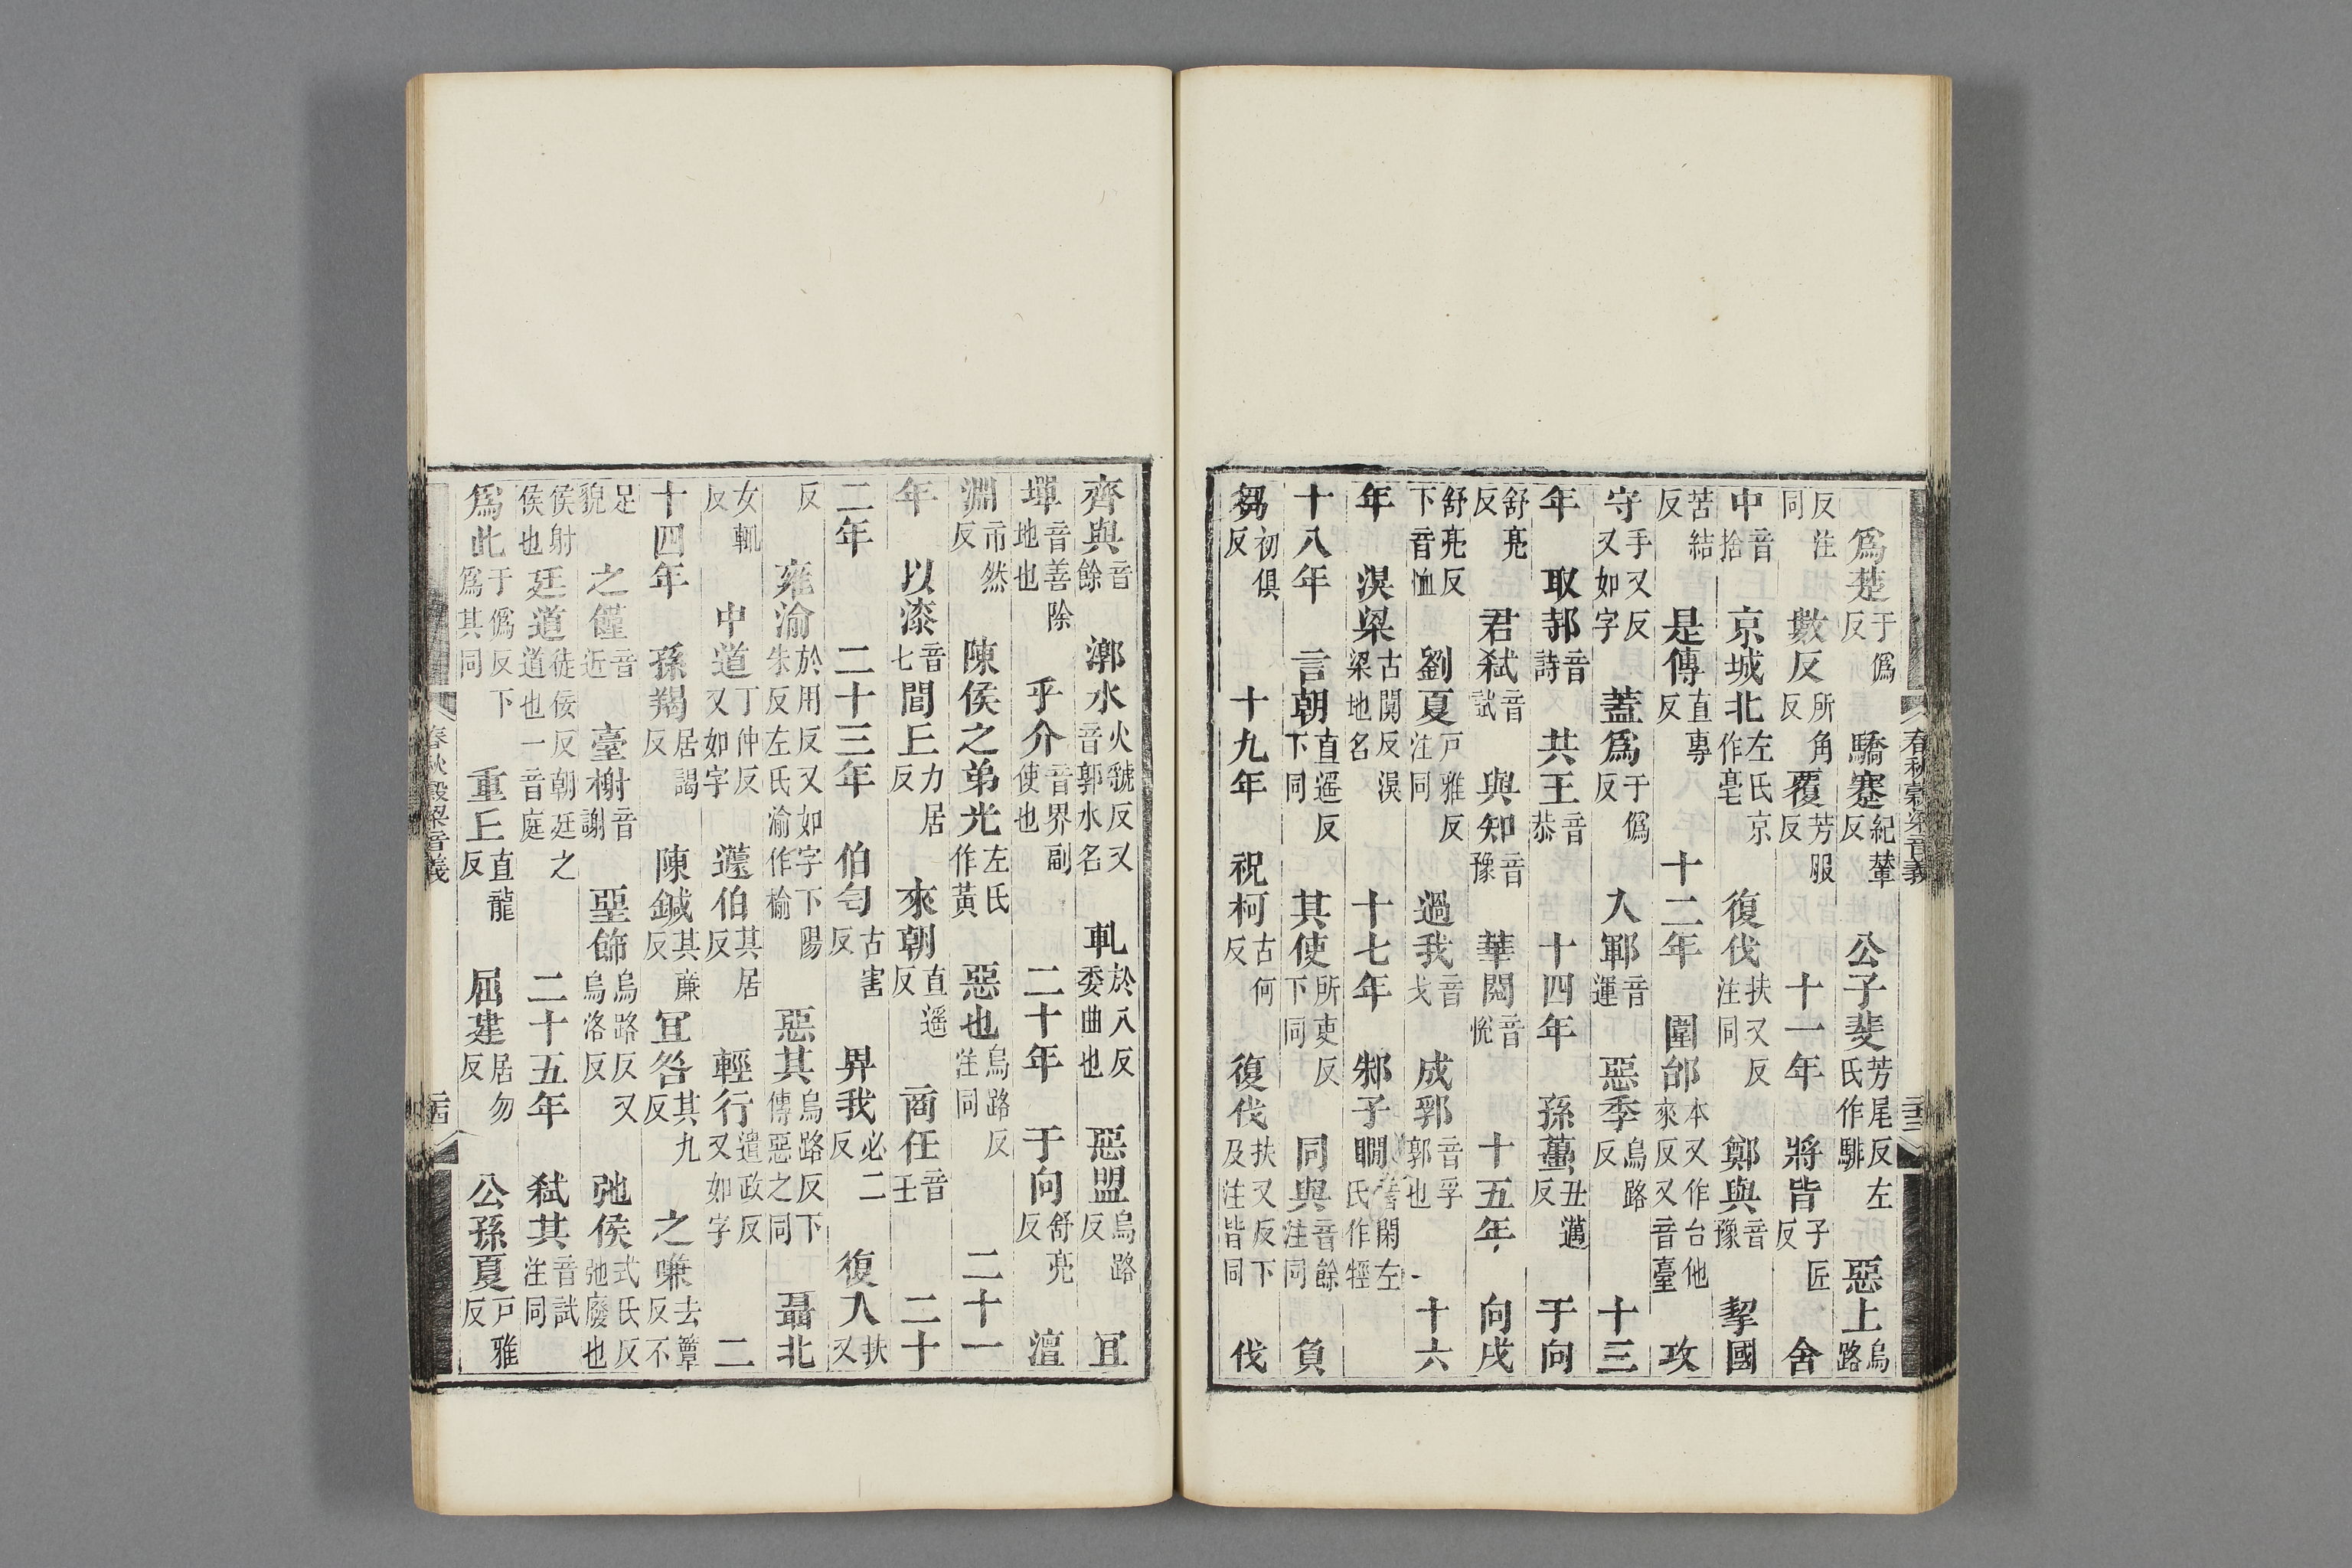 爲楚于僞反 驕蹇紀輦反 公子斐芳尾反左氏作騑 惡上烏路
反注同 數反所角反 覆芳服反 十一年 將皆子匠反 舍
中音捨 京城北左氏京作亳 復伐扶又反注同 鄭與音豫 挈國
苦結反 是傳直專反 十二年 圍邰本又作台他來反又音臺 攻
守手又反又如字 蓋爲于僞反 入鄆音運 惡季烏路反 十三
年 取邿音詩 共王音恭 十四年 孫蠆丑邁反 于向
舒亮反 君弒音試 與知音豫 華閱音悅 十五年 向戌
舒亮反下音恤 劉夏戸雅反注同 過我音戈 成郛音孚郭也 十六
年 湨梁古闃反湨梁地名 十七年 邾子瞷音閑左氏作牼
十八年 言朝直遥反下同 其使所吏反下同 同與音餘注同 負
芻初俱反 十九年 祝柯古何反 復伐扶又反下及注皆同 伐
齊與音餘 漷水火虢反又音郭水名 軋於八反委曲也 惡盟烏路反 宜
墠音善除地也 乎介音界副使也 二十年 于向舒亮反 澶
淵市然反 陳侯之弟光左氏作黃 惡也烏路反注同 二十一
年 以漆音七 閭丘力居反 來朝直遥反 商任音壬 二十
二年 二十三年 伯匄古害反 畀我必二反 復入扶又
反 雍渝於用反又如字下陽朱反左氏渝作榆 惡其烏路反下傳惡之同 聶北
女輒反 中道丁仲反又如字 蘧伯其居反 輕行遣政反又如字 二
十四年 孫羯居謁反 陳鍼其廉反 宜咎其九反 之嗛去簟反不
足貌 之僅音近 臺榭音謝 堊飾烏路反又烏洛反 弛侯式氏反弛廢也
侯射侯也 廷道徒佞反朝廷之道也一音庭 二十五年 弒其音試注同
爲此于僞反下爲其同 重丘直龍反 屈建居勿反 公孫夏戸雅反
春秋穀梁音義
春秋穀梁音義